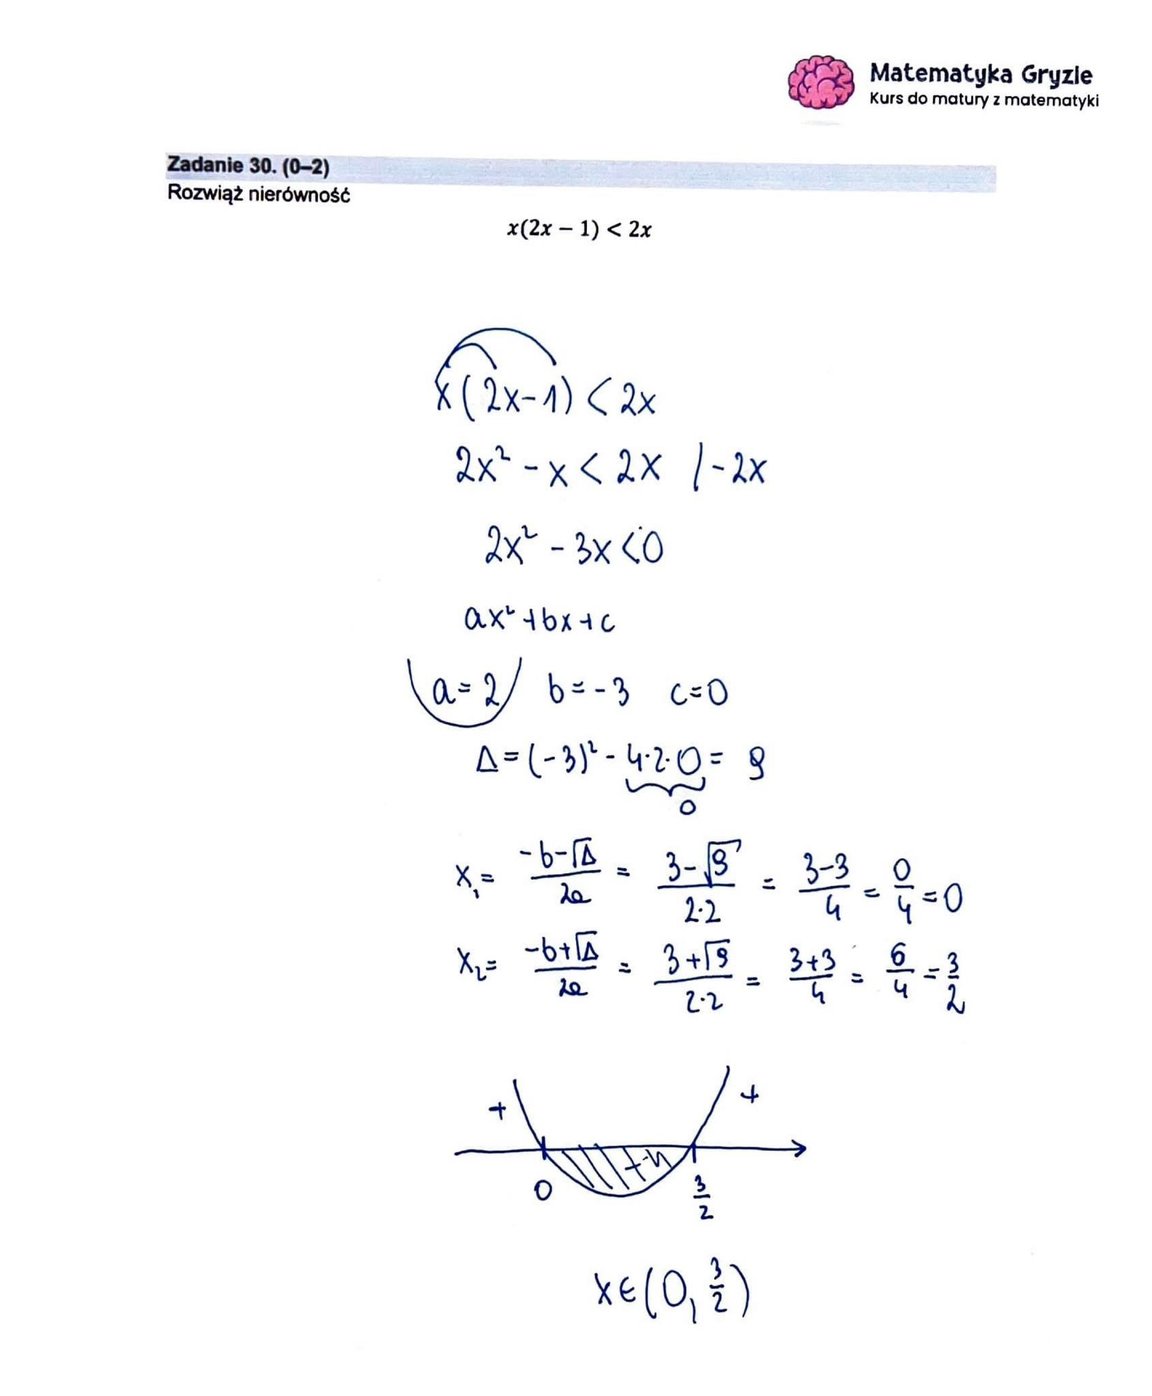 Matematyka Gryzie
Kurs do matury z matematyki
Zadanie 30. (0–2)
Rozwiąż nierówność
x(2x − 1) < 2x
x(2x-1) < 2x
2x² - x < 2x /-2x
2x² - 3x < 0
ax² + bx + c
a=2 b=-3 c=0
Δ = (-3)² - 4·2·0 = 9
0
x₁ = (-b-√Δ)/2a = (3-√9)/2·2 = (3-3)/4 = 0/4 = 0
x₂ = (-b+√Δ)/2a = (3+√9)/2·2 = (3+3)/4 = 6/4 = 3/2
+ +
0 3/2
x∈(0, 3/2)